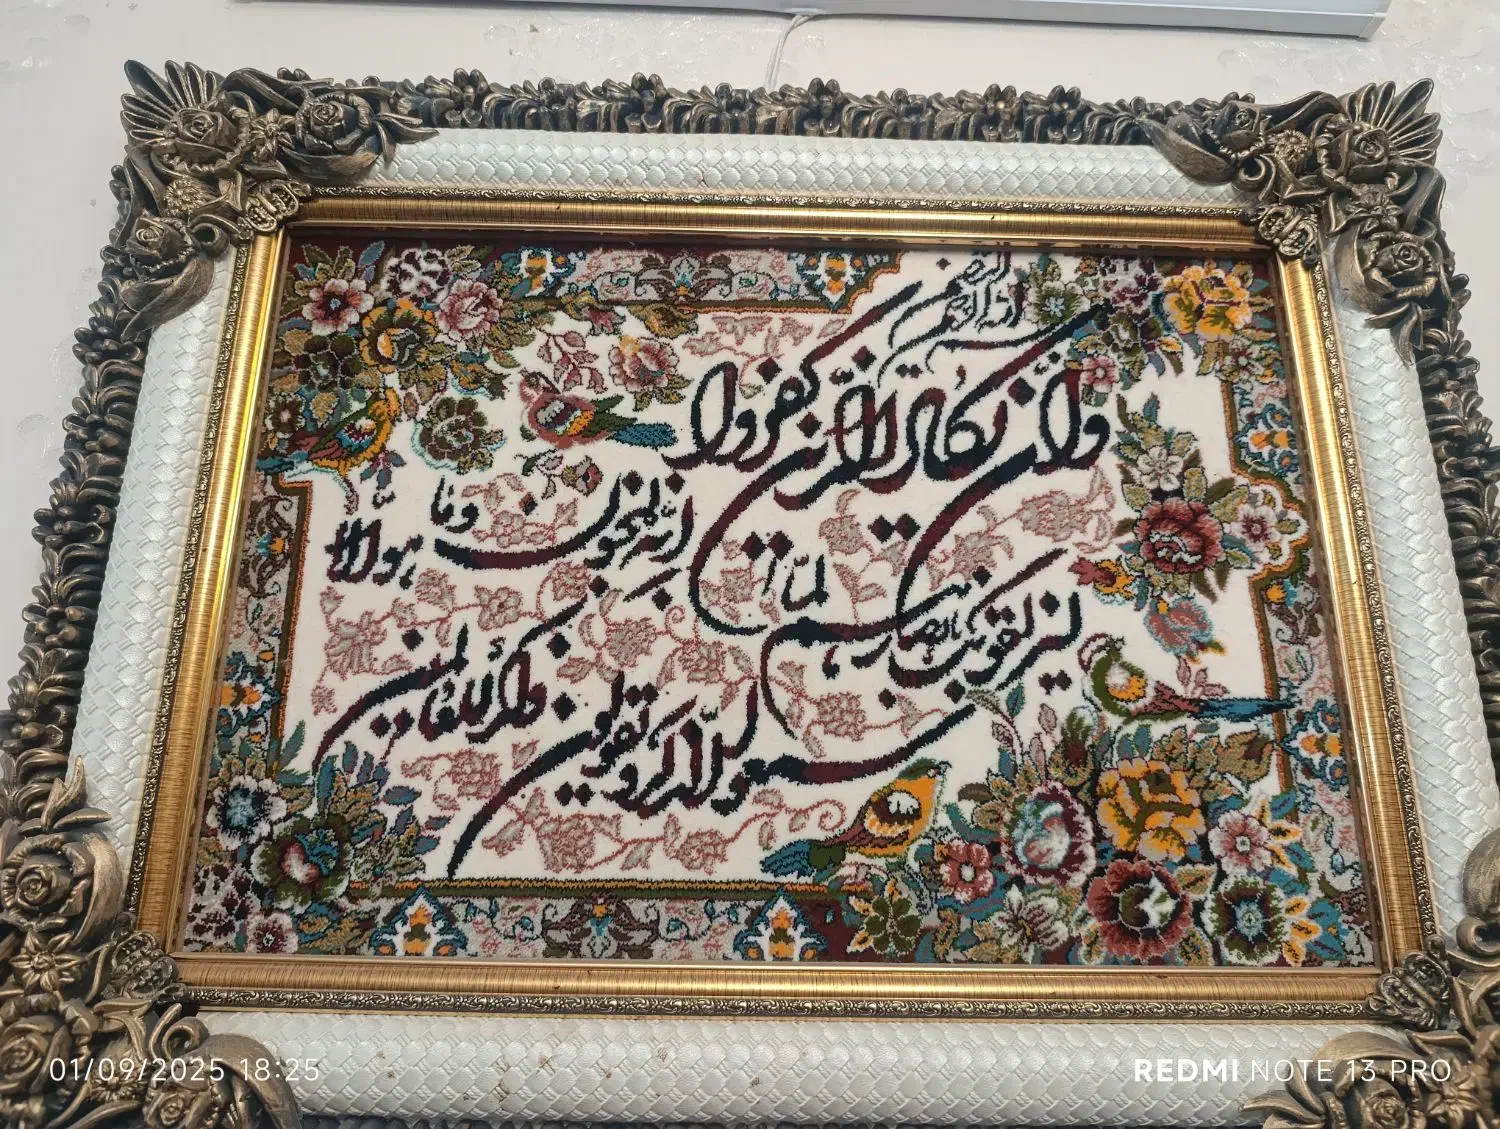 بسم الله الرحمن الرحیم
وان یکاد الذین کفروا
لیزلقونک بابصارهم لما
سمعوا الذکر ویقولون
انه لمجنون وما
هو الا
ذکر للعالمین
01/09/2025 18:25
REDMI NOTE 13 PRO